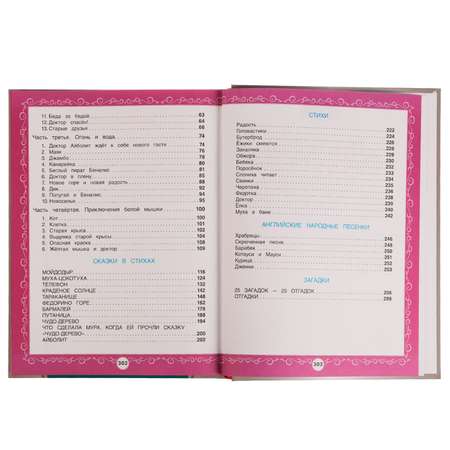 11. Беда за бедой 63
12. Доктор спасён! 64
13. Старые друзья 66
Часть третья. Огонь и вода 74
1. Доктор Айболит ждёт к себе нового гостя 74
2. Маяк 76
3. Джамбо 78
4. Канарейка 80
5. Беглый пират Беналис 81
6. Доктор в плену 85
7. Новое горе и новая радость 88
8. Дик 92
9. Попугай и Беналис 93
10. Новоселье 95
Часть четвертая. Приключения белой мышки
1. Кот
2. Клетка
3. Старая крыса 103
4. Выдумка старой крысы 104
5. Опасная краска 108
6. Жёлтая мышка и доктор 109
СКАЗКИ В СТИХАХ
МОЙДОДЫР 116
МУХА-ЦОКОТУХА 124
ТЕЛЕФОН 132
КРАДЕНОЕ СОЛНЦЕ 140
ТАРАКАНИЩЕ 148
ФЕДОРИНО ГОРЕ 162
БАРМАЛЕЙ 178
ПУТАНИЦА 188
ЧУДО-ДЕРЕВО 194
ЧТО СДЕЛАЛА МУРА, КОГДА ЕЙ ПРОЧЛИ СКАЗКУ
«ЧУДО-ДЕРЕВО» 200
АЙБОЛИТ 202
302
СТИХИ
Радость
Головастики 222
Бутерброд 224
Ёжики смеются 226
Закаляка 228
Обжора 229
Бебека 230
Поросёнок 232
Слониха читает 233
Свинки 234
Черепаха 236
Федотка 236
Доктор 237
Ёлка 238
Муха в бане 240
242
АНГЛИЙСКИЕ НАРОДНЫЕ ПЕСЕНКИ
Храбрецы
Скрюченная песня 246
Барабек 248
Котауси и Мауси 251
Курица 252
Дженни 253
ЗАГАДКИ
25 ЗАГАДОК — 25 ОТГАДОК 256
ОТГАДКИ
303